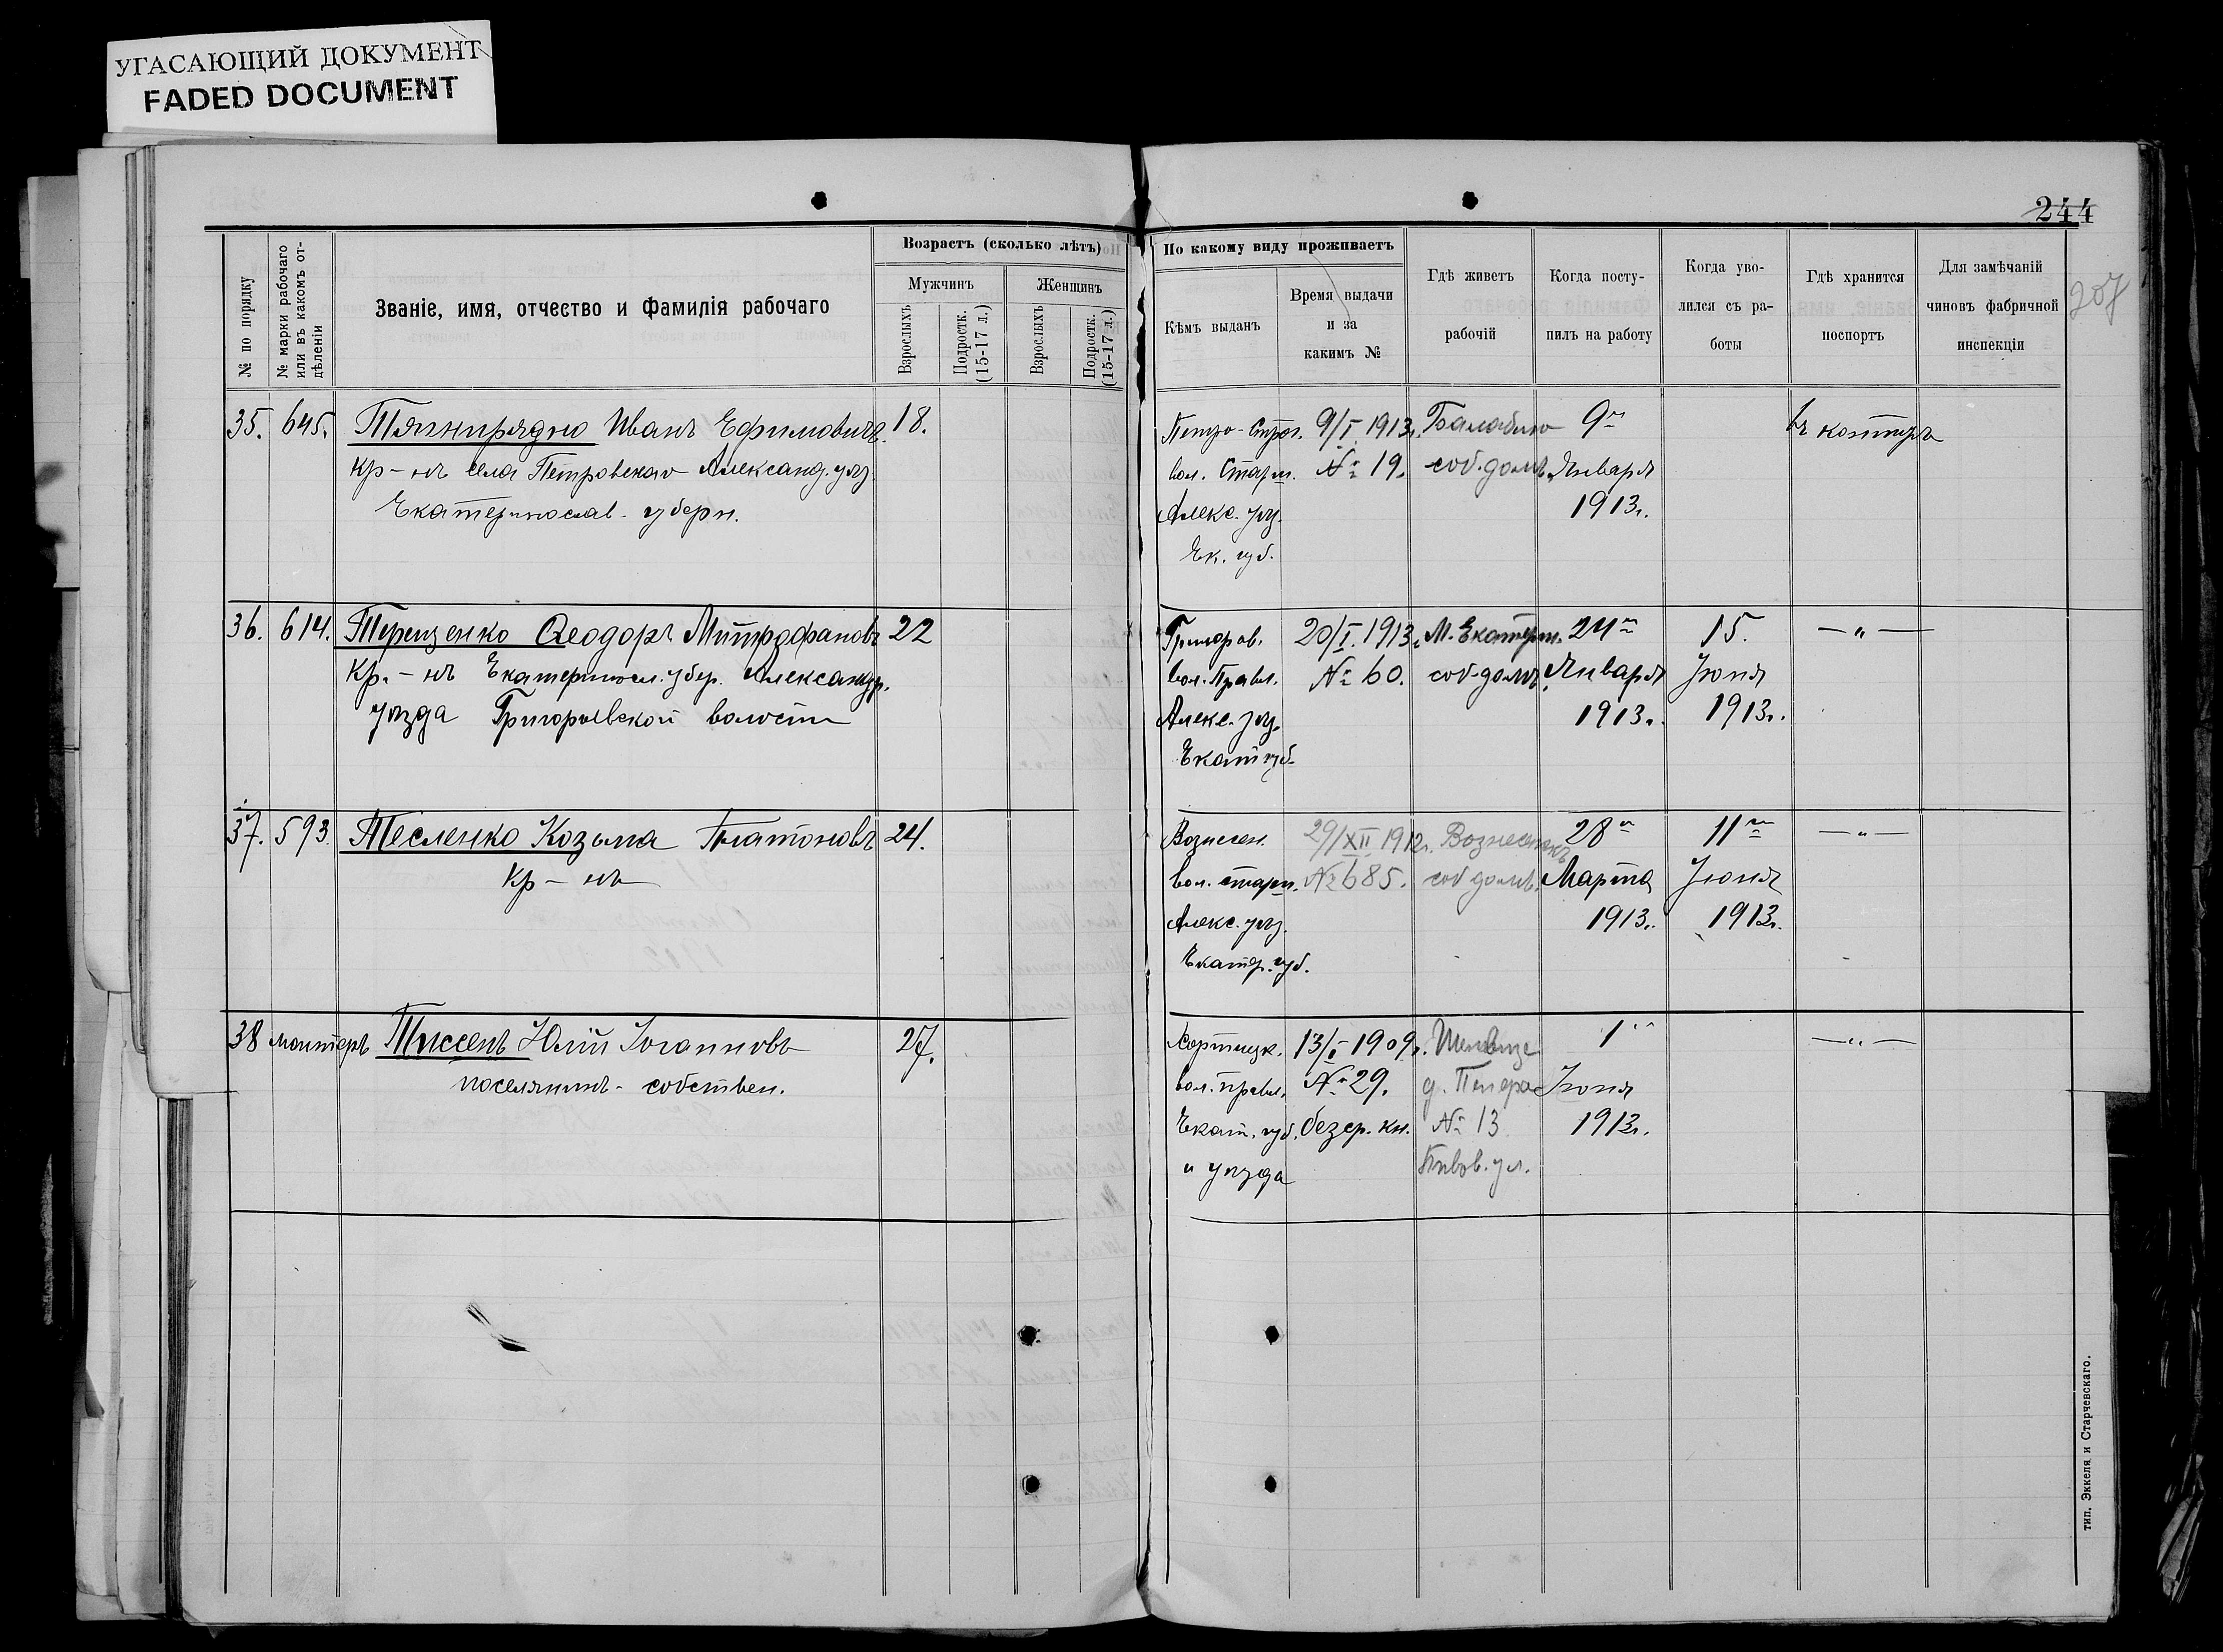 УГАСАЮЩИЙ ДОКУМЕНТ
FADED DOCUMENT
244
207
№ по порядку
№ марки рабочаго или въ какомъ от-дѣленіи
Званіе, имя, отчество и фамилія рабочаго
Возрастъ (сколько лѣтъ)
Мужчинъ
Женщинъ
Взрослыхъ
Подростк. (15-17 л.)
Взрослыхъ
Подростк. (15-17 л.)
По какому виду проживаетъ
Кѣмъ выданъ
Время выдачи
и за
какимъ №
Гдѣ живетъ
рабочій
Когда посту-
пилъ на работу
Когда уво-
лился съ ра-
боты
Гдѣ хранится
поспортъ
Для замѣчаній
чиновъ фабричной
инспекціи
35. 645. Тягнирядно Иванъ Ефимовичъ. 18.
кр-нъ села Петровскаго Александ. уѣз.
Екатеринослав. губерн.
Петро- 9/I 1913г. Балабино 9го въ конторѣ
вол. Старш. № 19. соб. домъ. Января
Алекс. уѣз. 1913г.
Ек. губ.
36. 614. Терещенко Ѳеодоръ Митрофановъ 22
Кр.-нъ Екатериносл. губер. Александр.
уѣзда Григорьевской волости
Григоров. 20/I 1913г. М. Екатерин. 24го 15. —„—
вол. Правл. № 60. соб. домъ. Января Іюня
Алекс. уѣз. 1913г. 1913г.
Екат. губ.
37. 593. Тесленко Козьма Платоновъ 24.
Кр-нъ
Вознесен. 29/XII 1912г. Вознесенскъ 28го 11го —„—
вол. старш. № 685. соб. домъ. Марта Іюня
Алекс. уѣз. 1913г. 1913г.
Екатер. губ.
38 монтеръ Тиссенъ Юлій Іоганновъ 27.
поселянинъ-собствен.
Хортицк. 13/I 1909г. Шенвизе 1го —„—
вол. правл. № 29. д. Петера Іюня
Екат. губ. безср. кн. № 13 1913г.
и уѣзда Пивов. ул.
тип. Эккеля и Старчевскаго.